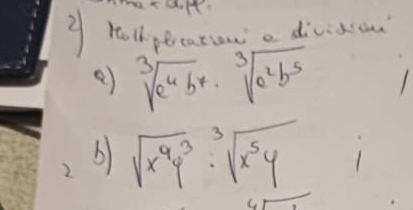 2) Moltiplicazioni e divisioni
a) ∛(a⁴b⁷) · ∛(a²b⁵) ;
b) √(x⁹y³) : ∛(x⁵y) ;